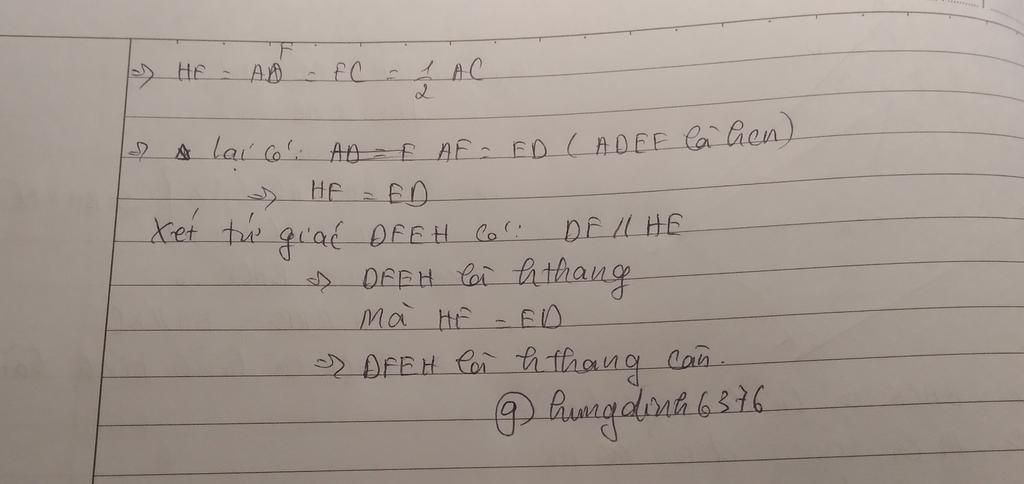 ⇒ HF = AF = FC = 1/2 AC
⇒ lại có: AF = ED ( ADEF là hcn)
⇒ HF = ED
Xét tứ giác DFEH có: DF // HE
⇒ DFEH là hthang
Mà HF = ED
⇒ DFEH là hthang cân.
@ hungdinh6376